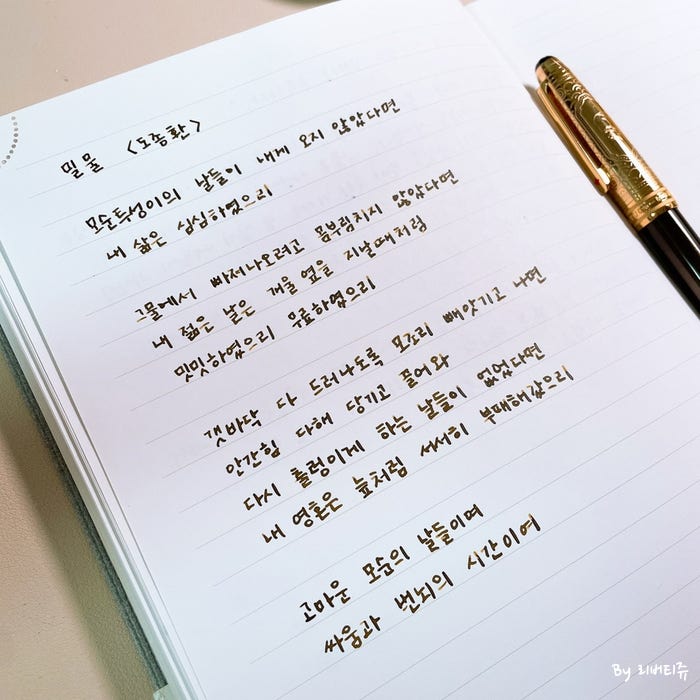 밀물 <도종환>
모순투성이의 날들이 내게 오지 않았다면
내 삶은 심심하였으리
그물에서 빠져나오려고 몸부림치지 않았다면
내 젊은 날은 개울 옆을 지날때처럼
밋밋하였으리 무료하였으리
갯바닥 다 드러나도록 모조리 빼앗기고 나면
안간힘 다해 당기고 끌어와
다시 출렁이게 하는 날들이 없었다면
내 영혼은 늪처럼 서서히 부패해갔으리
고마운 모순의 날들이며
싸움과 번뇌의 시간이여
By 리버티쥬